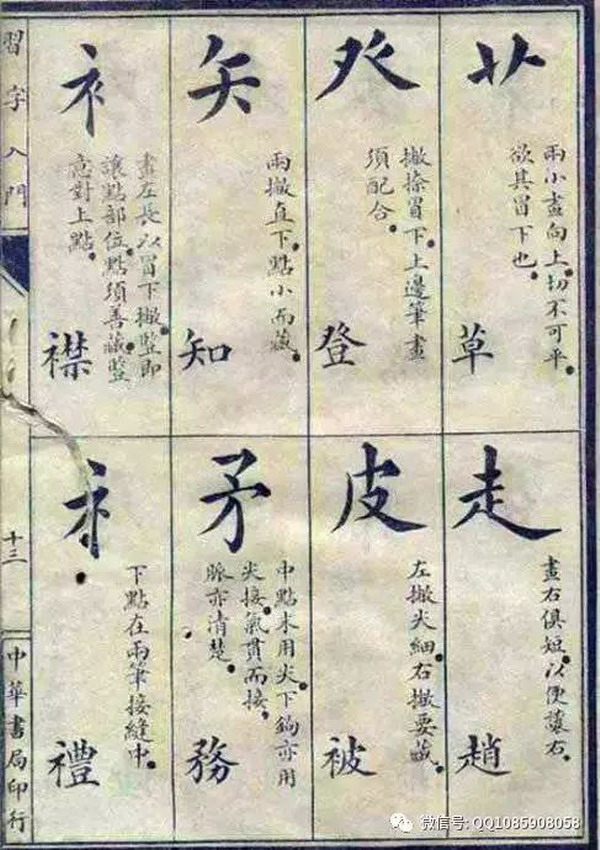 艹
兩小畫向上.切不可平.
欲其冒下也.
草
癶
撇捺冒下.上邊筆畫
須配合.
登
矢
兩撇直下.點小而藏.
知
衤
畫左長.以冒下撇.豎即
讓點部位.點須善藏.豎
意對上點.
襟
走
畫右俱短.以便讓右.
趙
皮
左撇尖細.右撇要藏.
被
矛
中點末用尖.下鉤亦用
尖接.氣貫而接.
脈亦清楚.
務
礻
下點在兩筆接縫中.
禮
習字入門
十三
中華書局印行
微信号: QQ1085908058